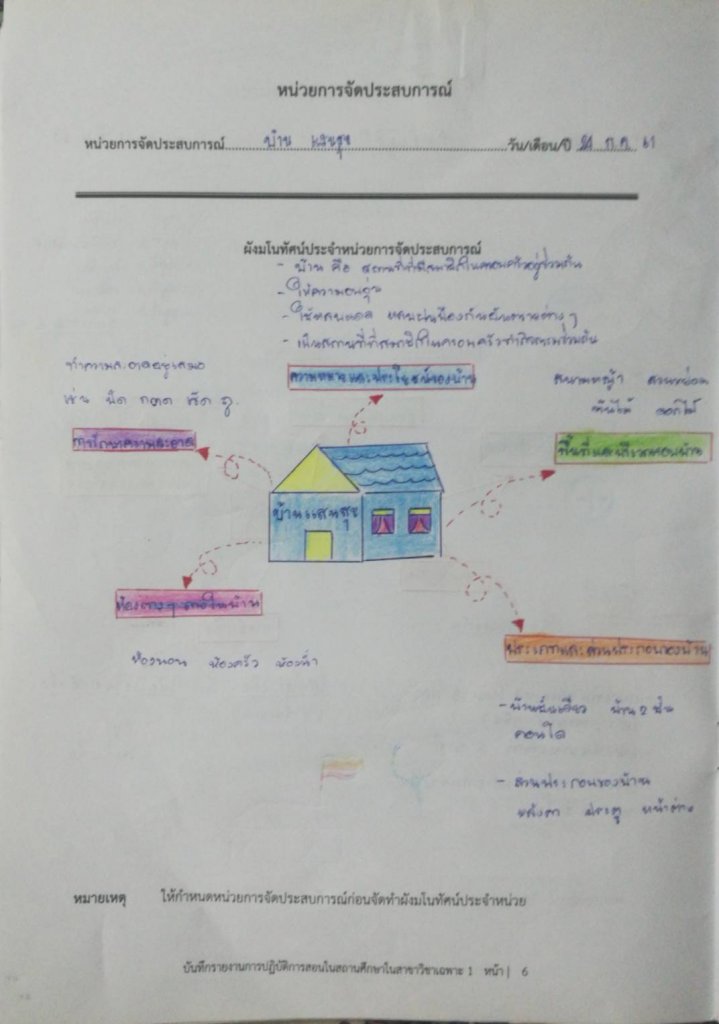 หน่วยการจัดประสบการณ์
หน่วยการจัดประสบการณ์ บ้าน แสนสุข วัน/เดือน/ปี 24 ก.ค. 61
ผังมโนทัศน์ประจำหน่วยการจัดประสบการณ์
- บ้าน คือ สถานที่ที่มีสมาชิกในครอบครัวอยู่ร่วมกัน
- ให้ความอบอุ่น
- ใช้หลบแดด หลบฝนป้องกันอันตรายต่างๆ
- เป็นสถานที่ที่สมาชิกในครอบครัวทำกิจกรรมร่วมกัน
ความหมายและประโยชน์ของบ้าน
ทำความสะอาดอยู่เสมอ
เช่น ปัด กวาด เช็ด ถู
การรักษาความสะอาด
สนามหญ้า สวนหย่อม
ต้นไม้ ดอกไม้
พื้นที่และบริเวณของบ้าน
บ้านแสนสุข
ห้องต่างๆ ภายในบ้าน
ห้องนอน ห้องครัว ห้องน้ำ
ประเภทและส่วนประกอบของบ้าน
- บ้านชั้นเดียว บ้าน 2 ชั้น
คอนโด
- ส่วนประกอบของบ้าน
หลังคา ประตู หน้าต่าง
หมายเหตุ ให้กำหนดหน่วยการจัดประสบการณ์ก่อนจัดทำผังมโนทัศน์ประจำหน่วย
บันทึกรายงานการปฏิบัติการสอนในสถานศึกษาในสาขาวิชาเฉพาะ 1 หน้า | 6